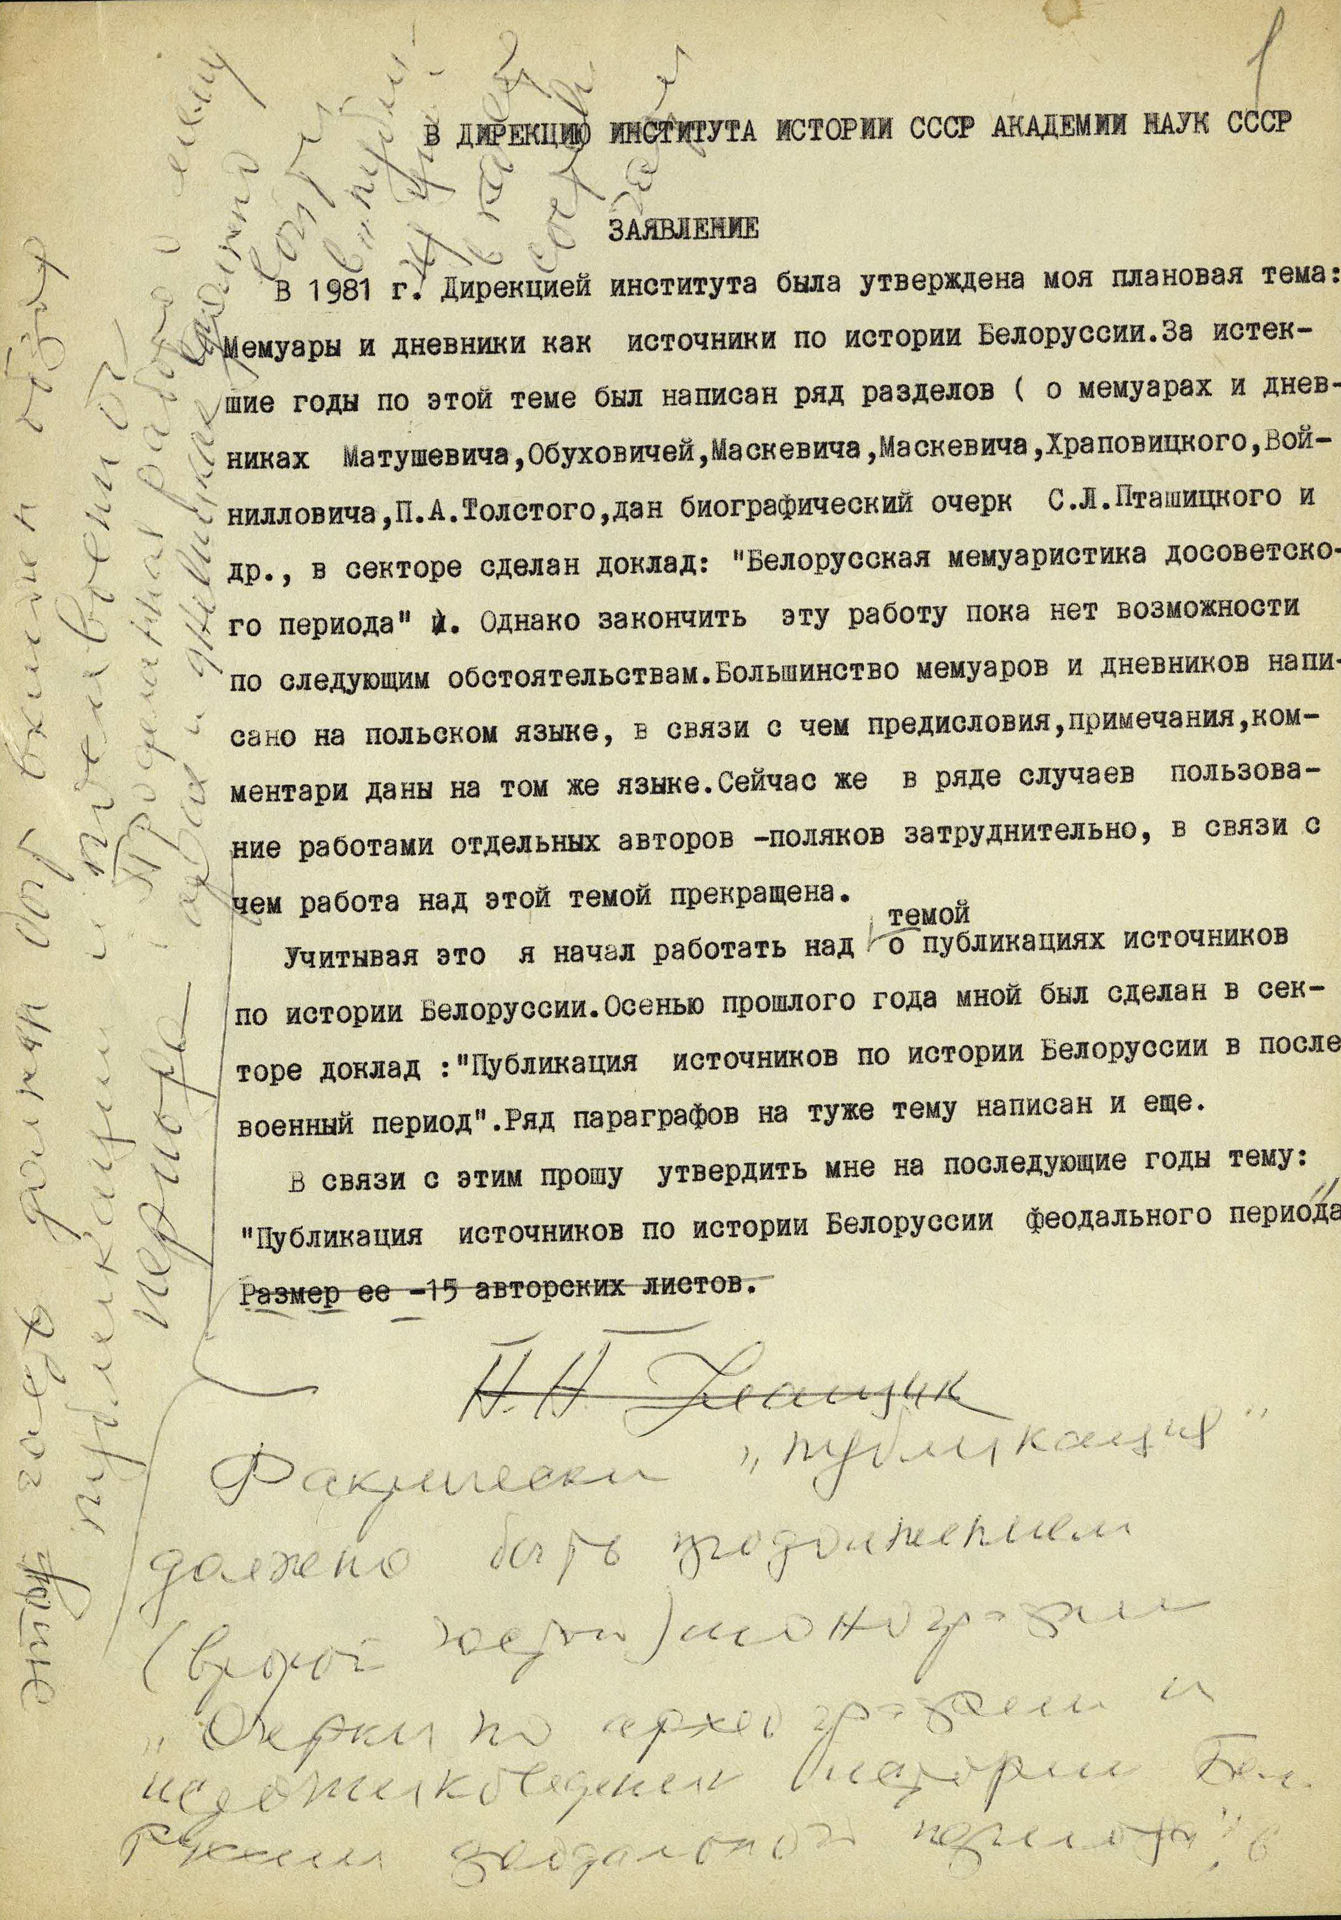 1
В ДИРЕКЦИЮ ИНСТИТУТА ИСТОРИИ СССР АКАДЕМИИ НАУК СССР
ЗАЯВЛЕНИЕ
В 1981 г. Дирекцией института была утверждена моя плановая тема:
Мемуары и дневники как источники по истории Белоруссии.За истек-
шие годы по этой теме был написан ряд разделов ( о мемуарах и днев-
никах Матушевича,Обуховичей,Маскевича,Маскевича,Храповицкого,Вой-
нилловича,П.А.Толстого,дан биографический очерк С.Л.Пташицкого и
др., в секторе сделан доклад: "Белорусская мемуаристика досоветско-
го периода" и. Однако закончить эту работу пока нет возможности
по следующим обстоятельствам.Большинство мемуаров и дневников напи-
сано на польском языке, в связи с чем предисловия,примечания,ком-
ментари даны на том же языке.Сейчас же в ряде случаев пользова-
ние работами отдельных авторов -поляков затруднительно, в связи с
чем работа над этой темой прекращена.
темой
Учитывая это я начал работать над о публикациях источников
по истории Белоруссии.Осенью прошлого года мной был сделан в сек-
торе доклад :"Публикация источников по истории Белоруссии в после
военный период".Ряд параграфов на туже тему написан и еще.
В связи с этим прошу утвердить мне на последующие годы тему:
"Публикация источников по истории Белоруссии феодального периода"
Размер ее -15 авторских листов.
Н.Н. Улащик
Фактически „публикация"
должно быть продолжением
(второй части) монографии
„Очерки по археографии и
источниковедению истории Бело
руссии феодального периода", в
эту часть должен быть включен обзор
публикации и послевоенного
периода
Проделанная работа о